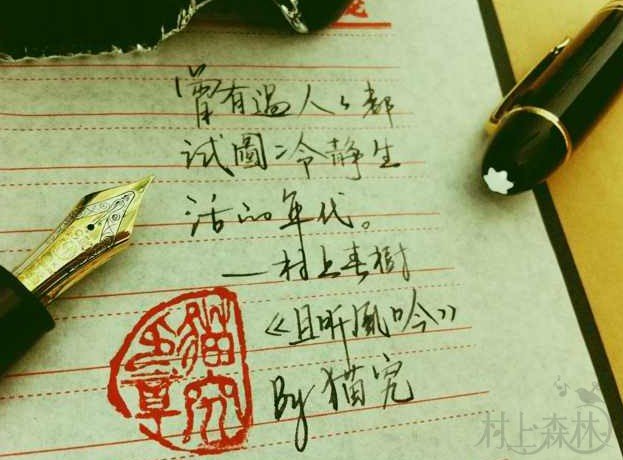 曾有過人人都
試圖冷静生
活的年代。
——村上春樹
《且听風吟》
By 猫宄
猫宄之章
村上森林